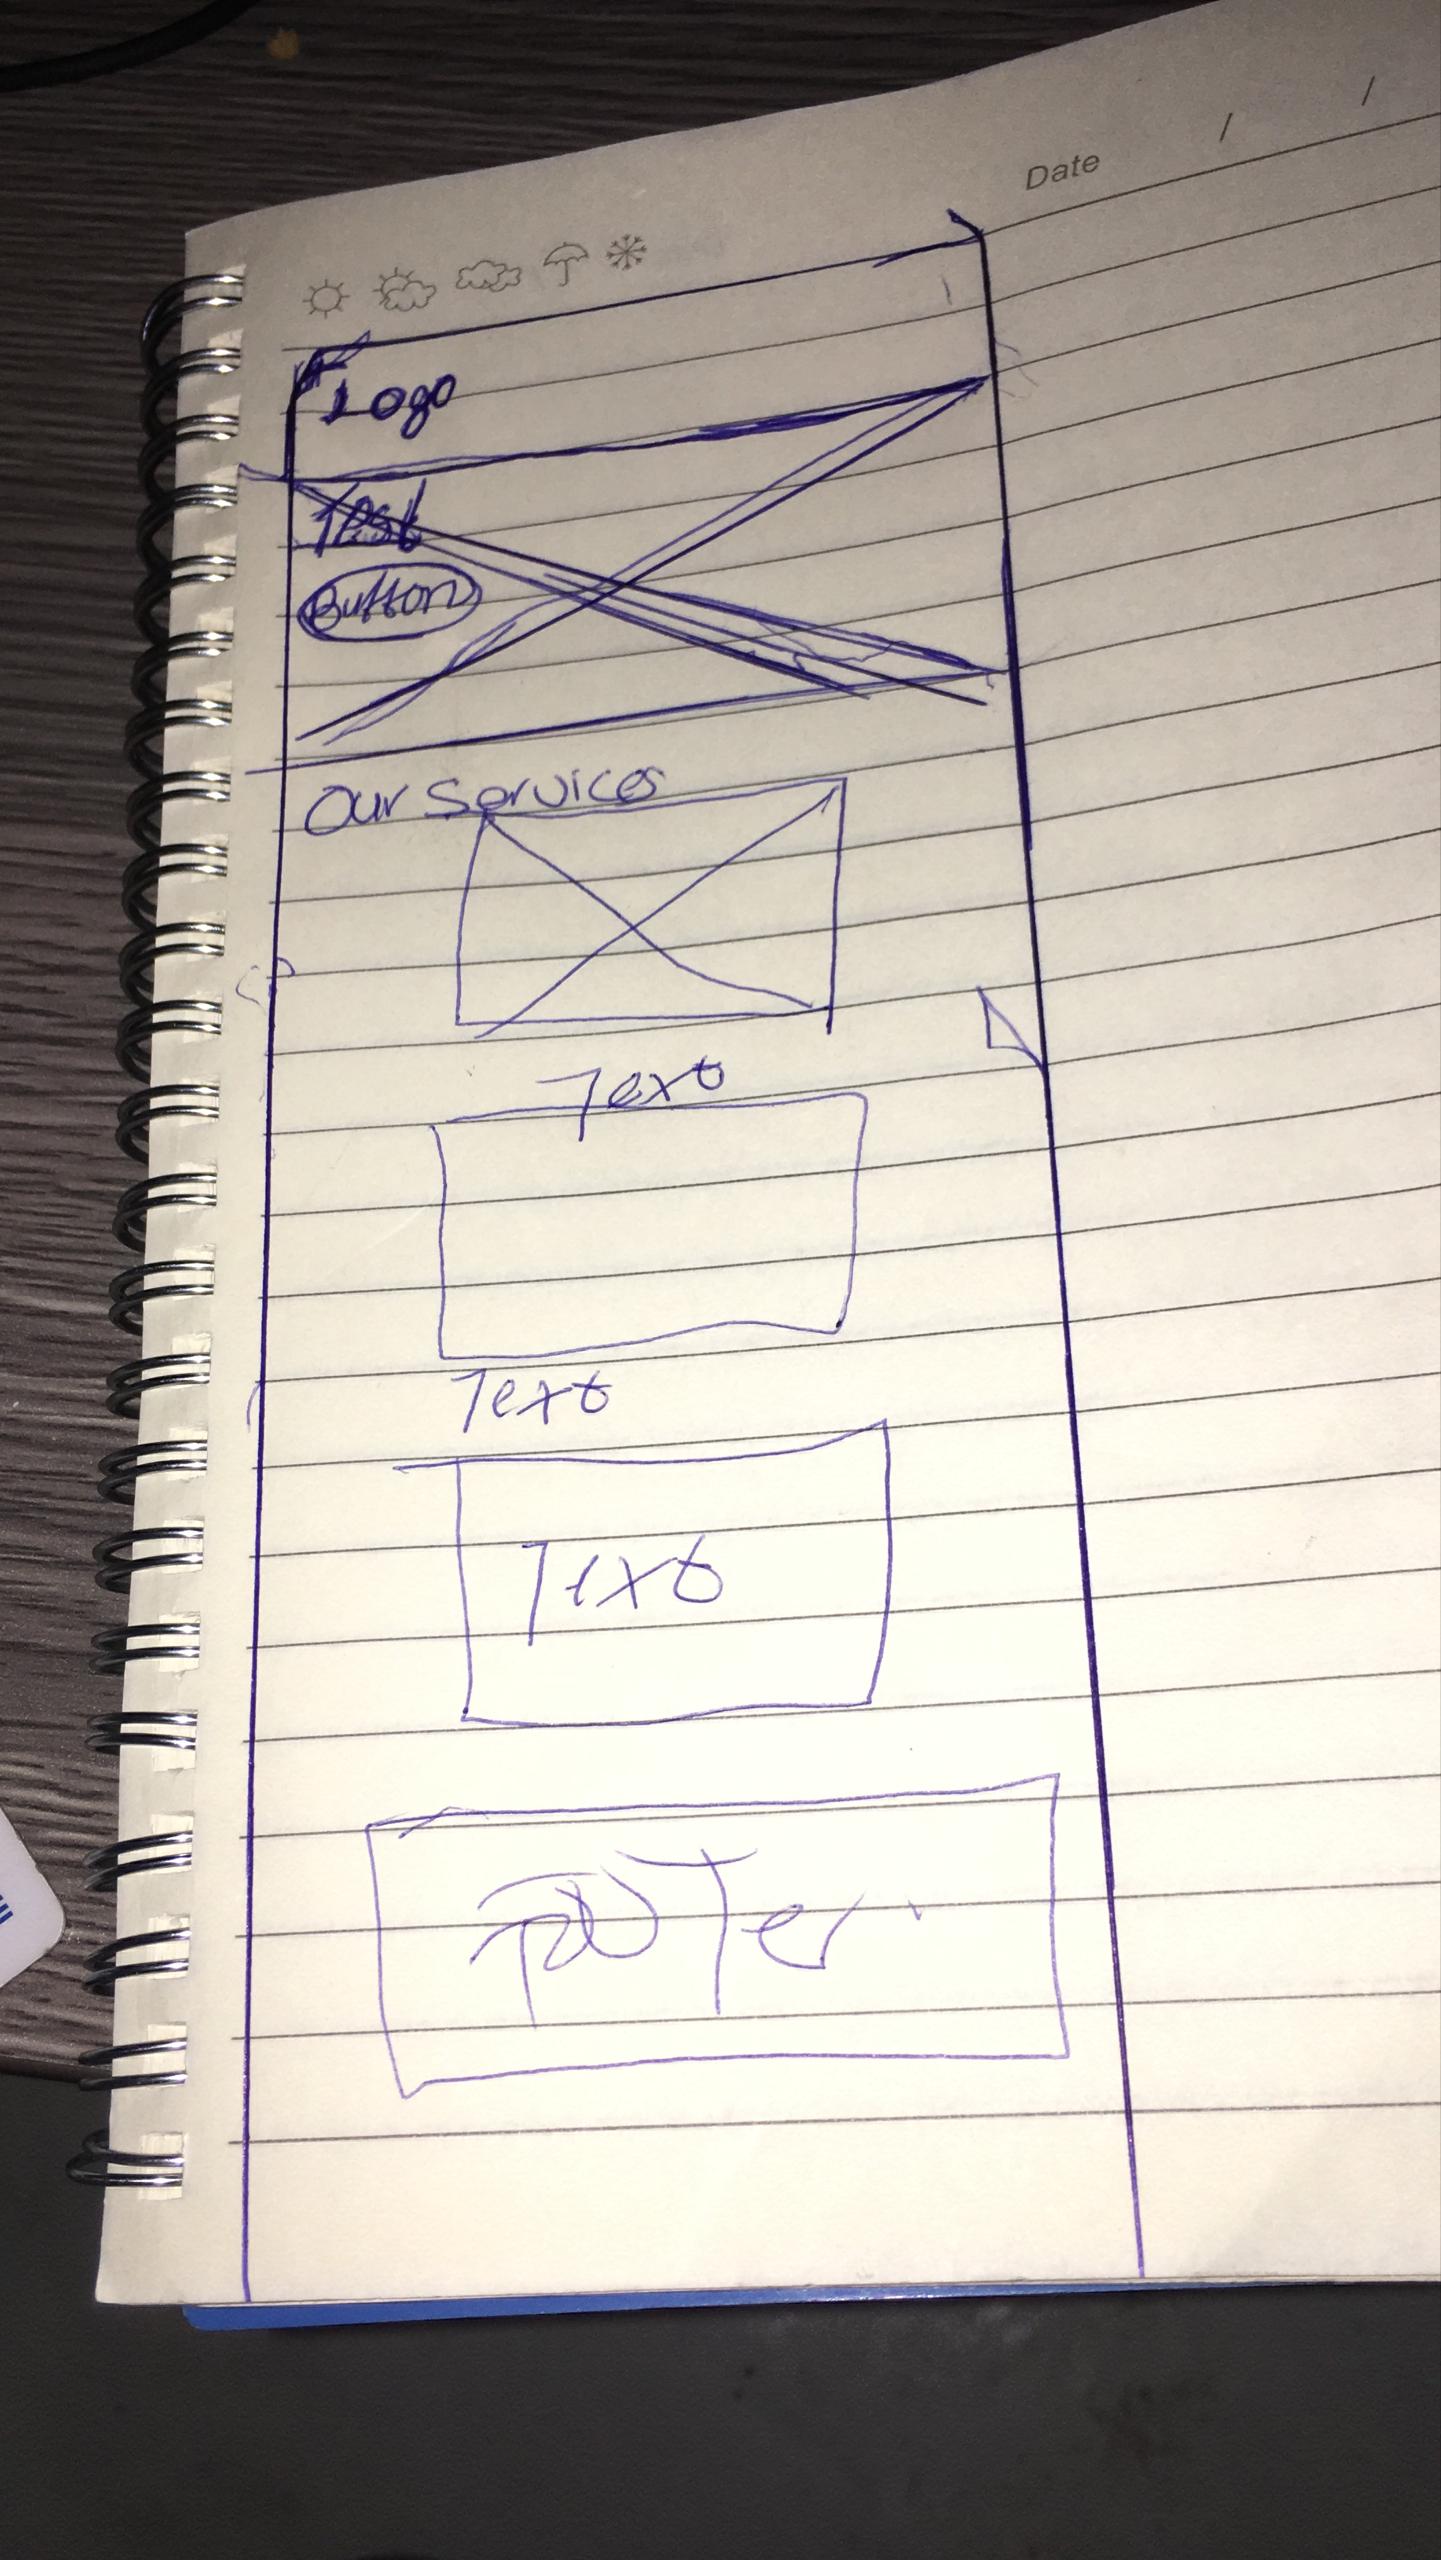 Date / /
Logo
Text
Button
Our Services
Text
Text
Text
FooTer